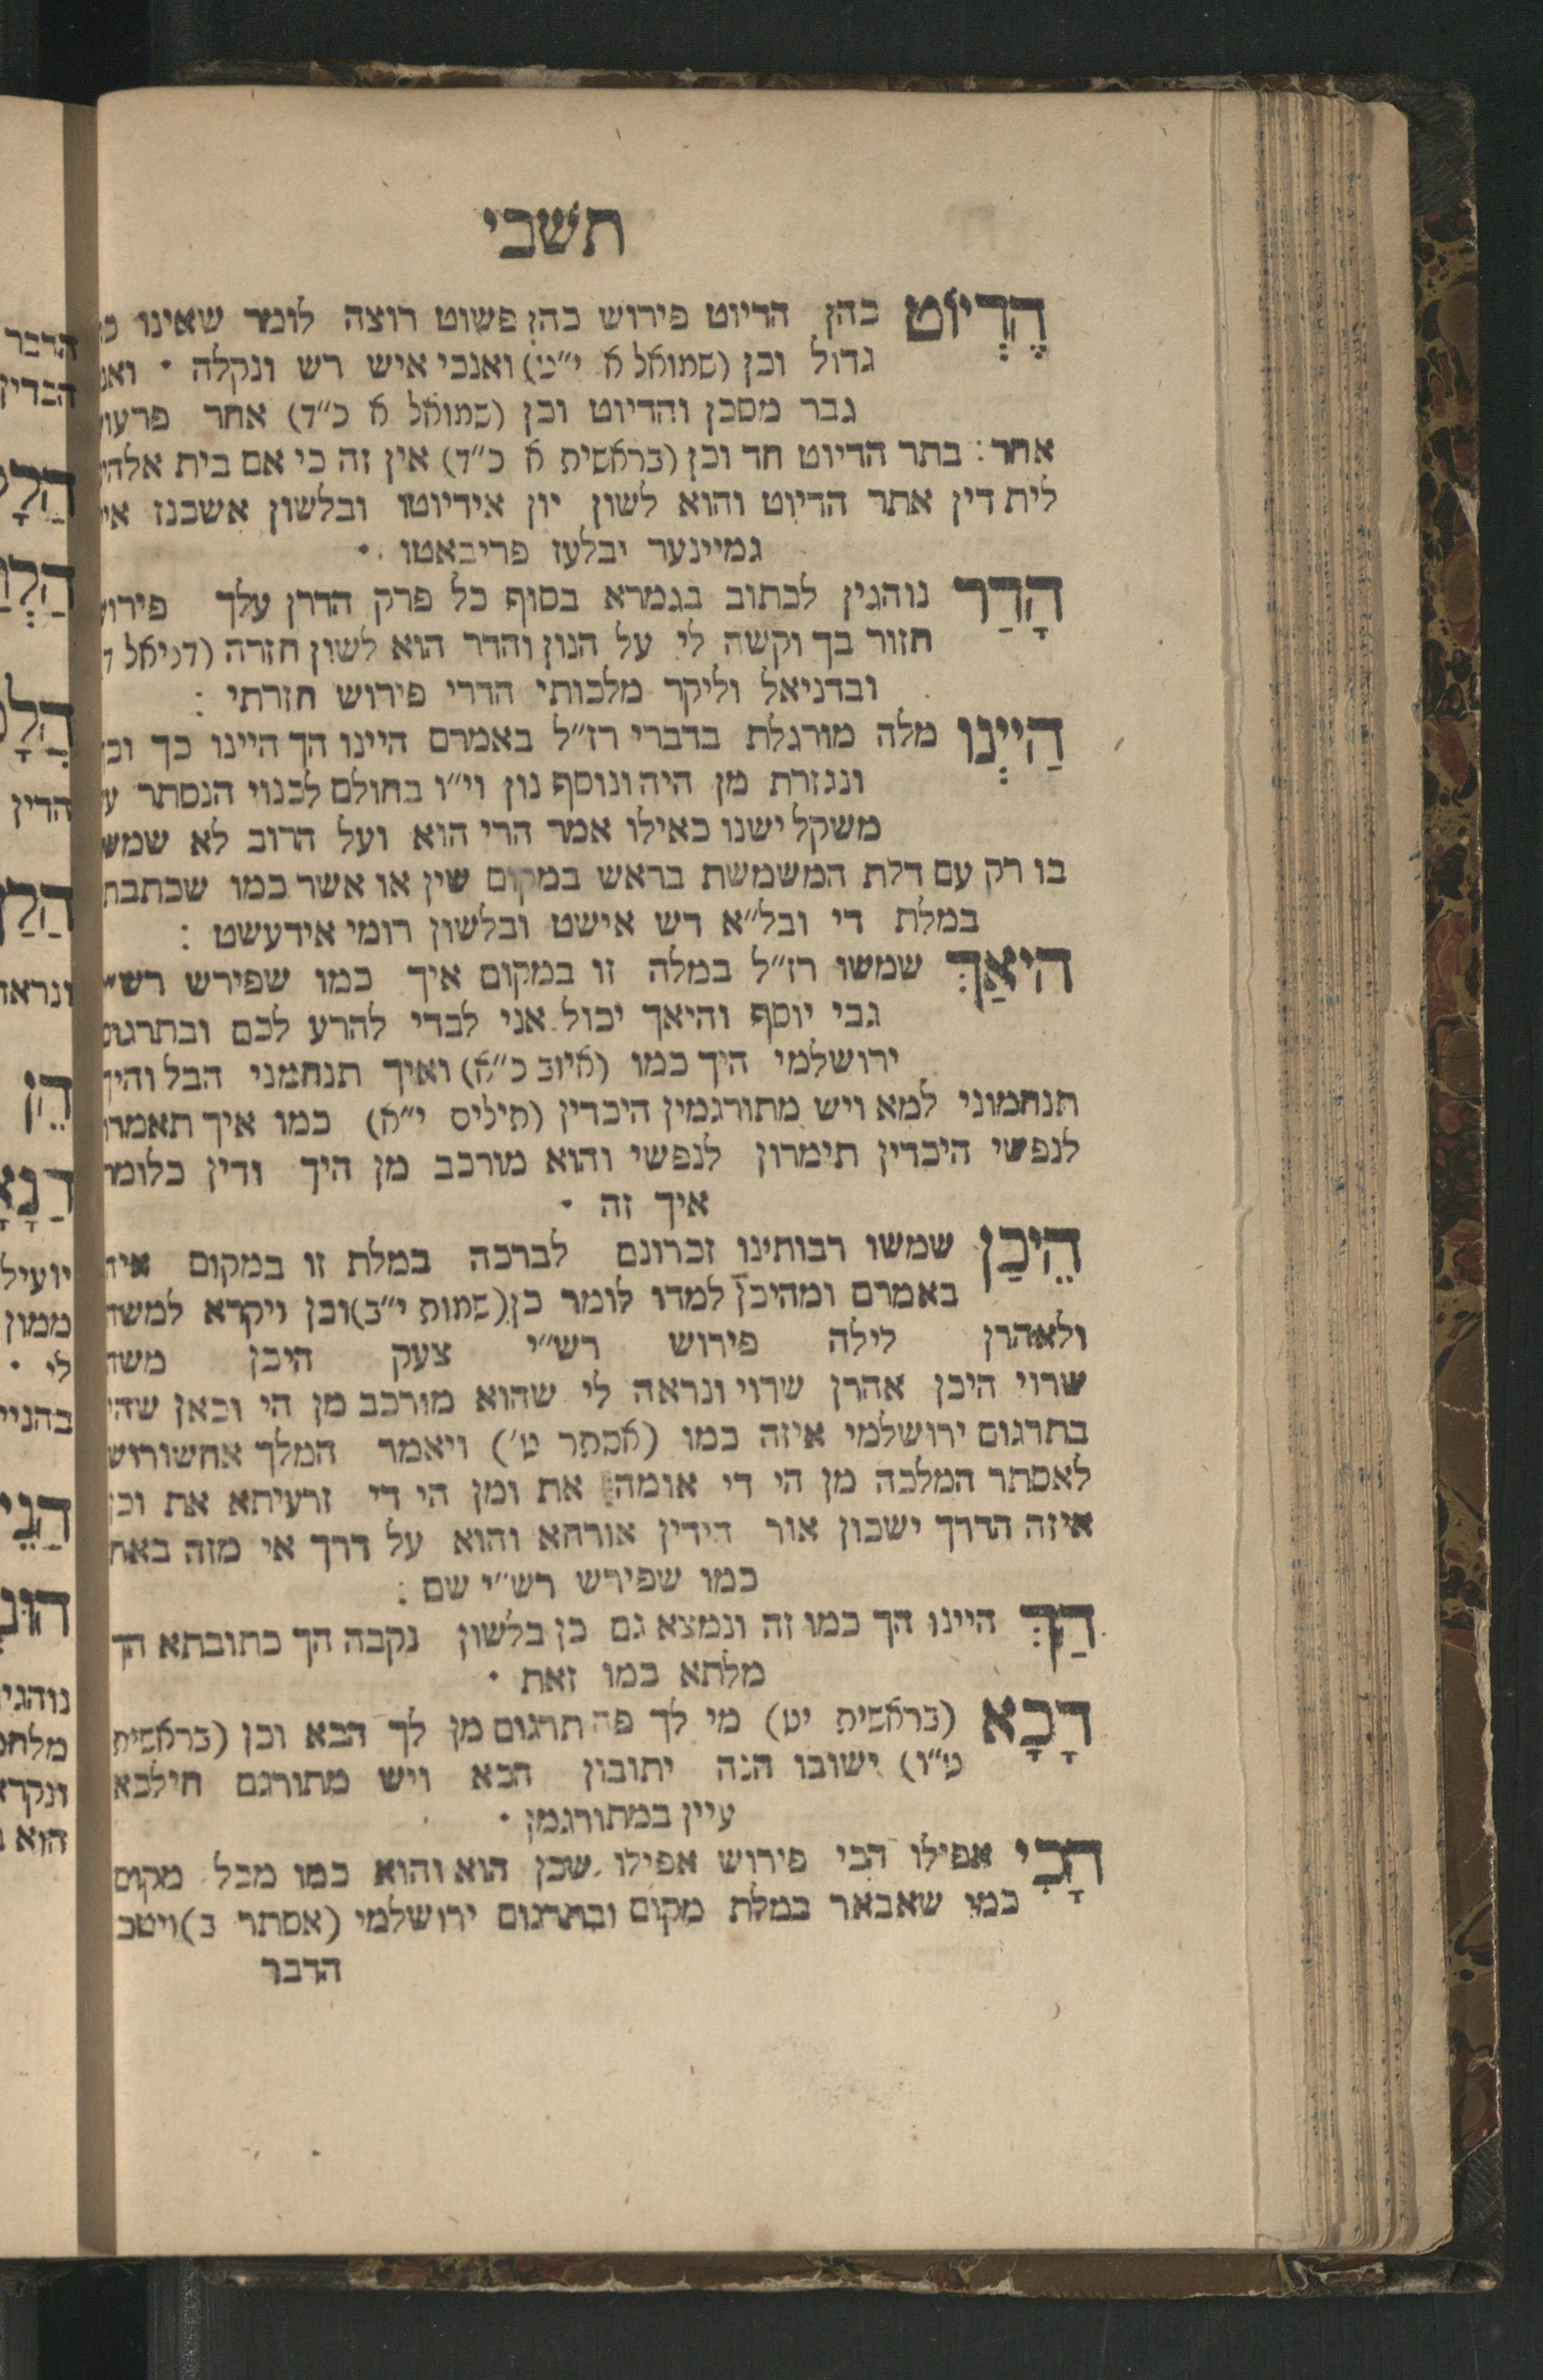 תשבי
הֶדְיוֹט כהן הדיוט פירוש כהן פשוט רוצה לומר שאינו
גדול וכן (שמואל א י״ט) ואנכי איש רש ונקלה ׃
גבר מסכן והדיוט וכן (שמואל א כ״ד) אחר פרעוש
אחד: בתר הדיוט חד וכן (בראשית א כ״ד) אין זה כי אם בית אלהי
לית דין אתר הדיוט והוא לשון יון אידיוטו ובלשון אשכנז
גמיינער יבלעז פריבאטו ׃
הֲדַר נוהגין לכתוב בגמרא בסוף כל פרק הדרן עלך פירוש
חזור בך וקשה לי על הנון והדר הוא לשון חזרה (דניאל
ובדניאל וליקר מלכותי הדרי פירוש חזרתי :
הַיְינוּ מלה מורגלת בדברי רז״ל באמרם היינו הך היינו כך
ונגזרת מן היה ונוסף נון וי״ו בחולם לכנוי הנסתר
משקל ישנו כאילו אמר הרי הוא ועל הרוב לא שמש
בו רק עם דלת המשמשת בראש במקום שין או אשר כמו שכתבתי
במלת די ובל״א דש אישט ובלשון רומי אידעשט :
הֵיאַךְ שמשו רז״ל במלה זו במקום איך כמו שפירש רש״י
גבי יוסף והיאך יכול אני לבדי להרע לכם ובתרגום
ירושלמי היך כמו (איוב כ״א) ואיך תנחמני הבל והיך
תנחמוני למא ויש מתורגמין היכדין (תילים י״א) כמו איך תאמרו
לנפשי היכדין תימרון לנפשי והוא מורכב מן היך ודין כלומר
איך זה ׃
הֵיכָן שמשו רבותינו זכרונם לברכה במלת זו במקום איה
באמרם ומהיכן למדו לומר כן (שמות י״ב) וכן ויקרא למשה
ולאהרן לילה פירוש רש״י צעק היכן משה
שרוי היכן אהרן שרוי ונראה לי שהוא מורכב מן הי וכאן שהי
בתרגום ירושלמי איזה כמו (אסתר ט׳) ויאמר המלך אחשורוש
לאסתר המלכה מן הי די אומה את ומן הי די זרעיתא את וכן
איזה הדרך ישכון אור הידין אורחא והוא על דרך אי מזה באת
כמו שפירש רש״י שם :
הַךְ היינו הך כמו זה ונמצא גם כן בלשון נקבה הך כתובתא הך
מלתא כמו זאת ׃
הָכָא (בראשית יט) מי לך פה תרגום מן לך הכא וכן (בראשית
ט״ו) ישובו הנה יתובון הכא ויש מתורגם הילכא
עיין במתורגמן ׃
הָכִי אפילו הכי פירוש אפילו שכן הוא והוא כמו מכל מקום
כמו שאבאר במלת מקום ובתרגום ירושלמי (אסתר ב) ויטב
הדבר